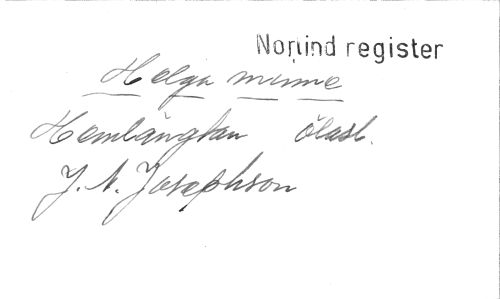 Norlind register
Helga minne
Hemlängtan ölast.
J. A. Josephson